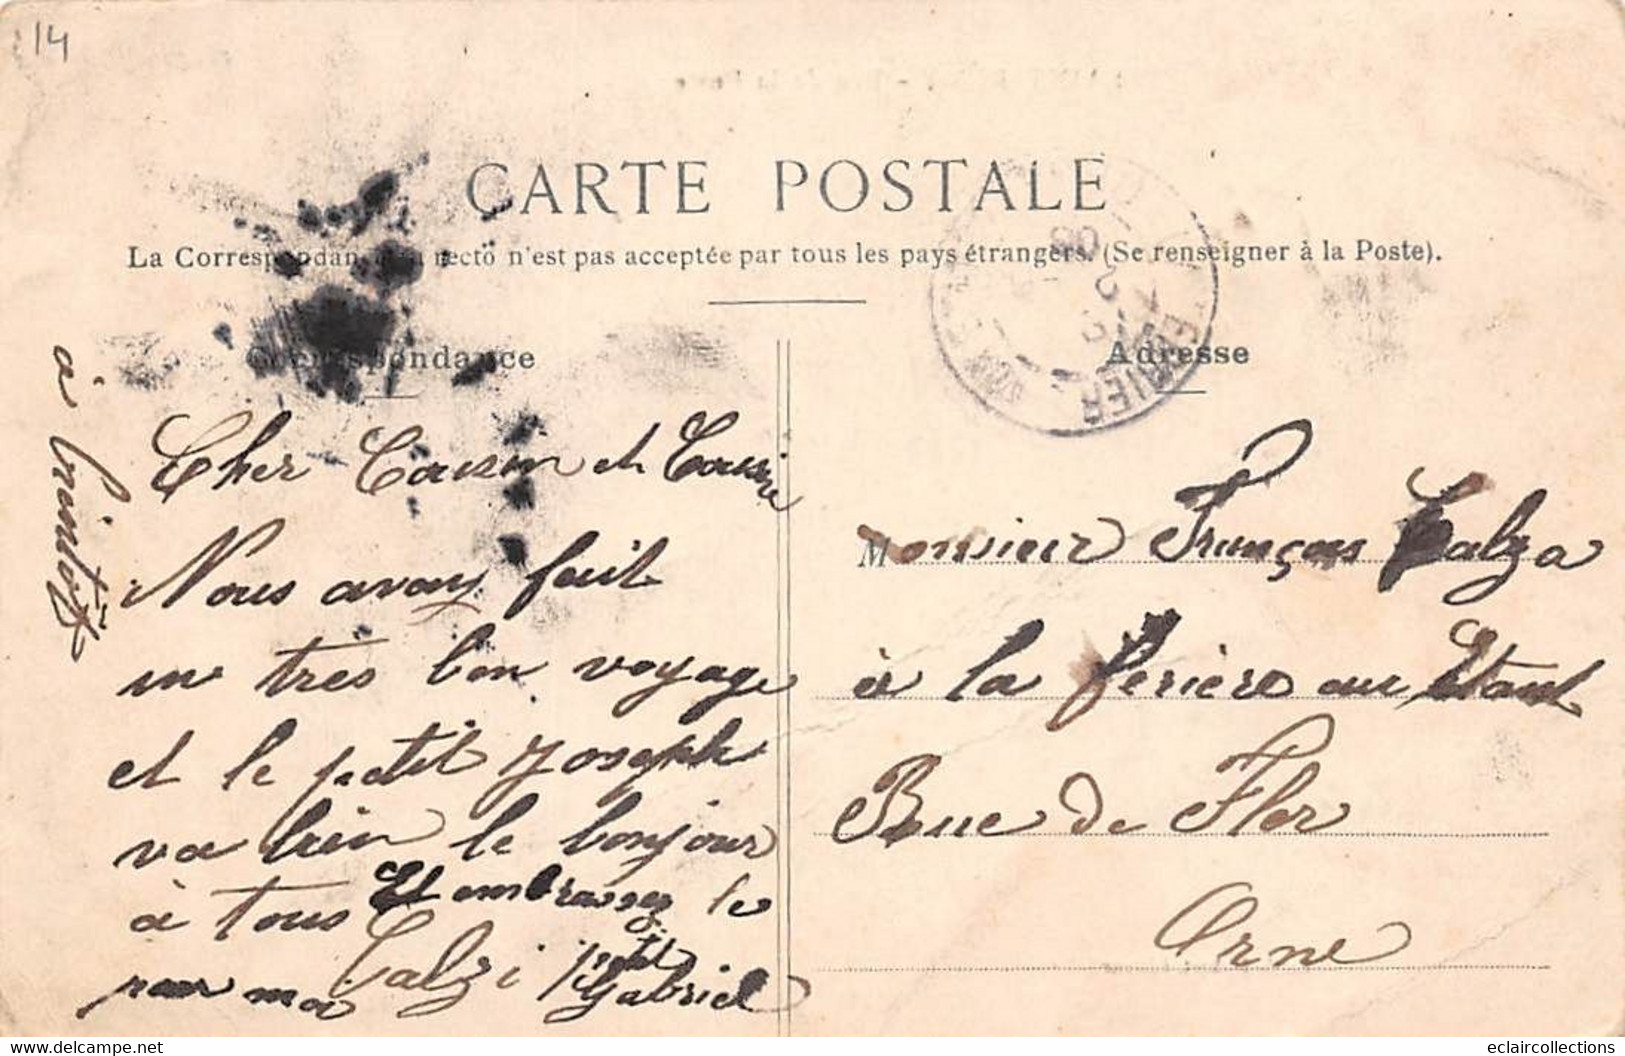 14
CARTE POSTALE
La Correspondance au recto n'est pas acceptée par tous les pays étrangers. (Se renseigner à la Poste).
Correspondance
Adresse
FERRIER
Cher Cousin et Cousine
Nous avons fait
un très bon voyage
et le petit Joseph
va bien le bonjour
à tous Et embrasser le
petit
pour moi Calzi Gabriel
à bientôt
Monsieur François Calza
à la ferière au Etant
Rue de Fler
Orne
Delcampe.net
eclaircollections